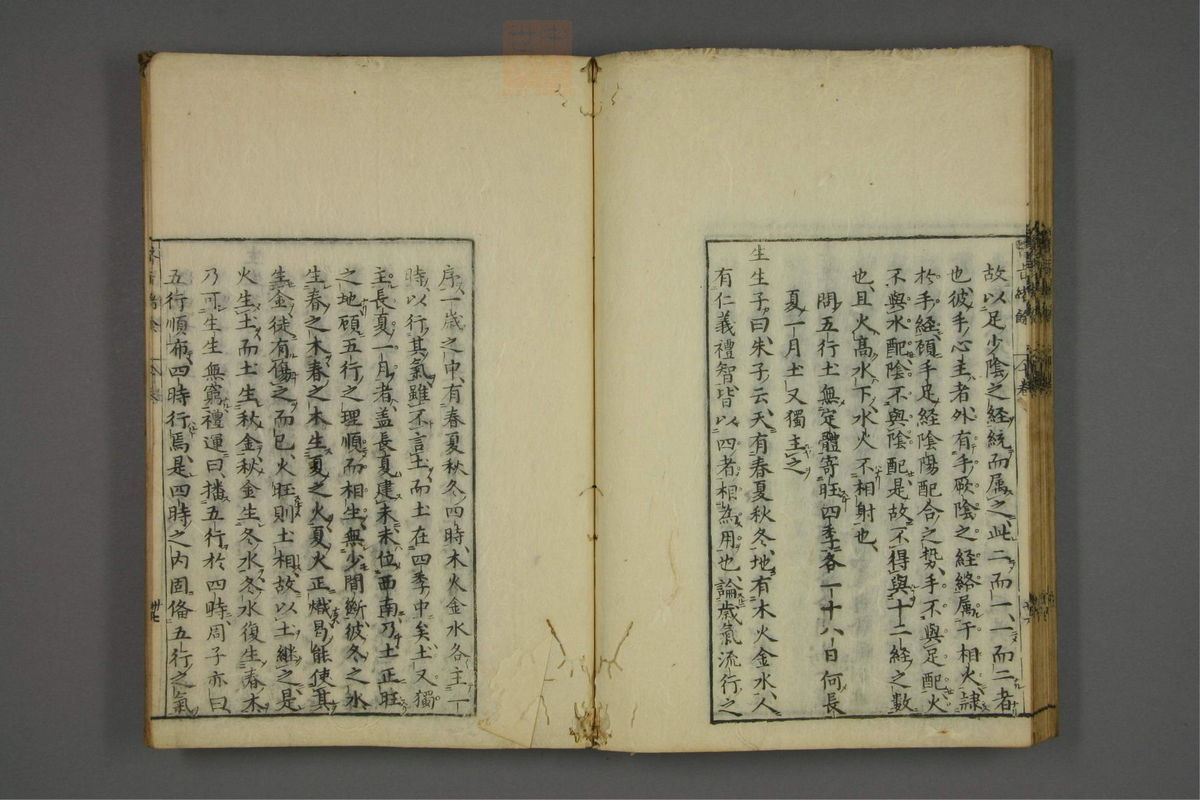 故以足少陰之経統而属之此二而一一而二者
也彼手心主者外有手厥陰之経絡属于相火隷
於手経頋手足経陰陽配合之勢手不與足配火
不與水配陰不與陰配是故不得與十二経之数
也且火高水下水火不相射也
問五行土無定體寄旺四季各一十八日何長
夏一月土又獨主之
生生子曰朱子云天有春夏秋冬地有木火金水人
有仁義禮智皆以四者相為用也論歳氣流行之
序一歳之中有春夏秋冬四時木火金水各主一
時以行其氣雖不言土而土在四季中矣土又獨
主長夏一月者盖長夏建未未位西南乃土正旺
之地頋五行之理順而相生無少間斷彼冬之水
生春之木春之木生夏之火夏火正熾曷能使其
生金徒有傷之而已火旺則土相故以土継之是
火生土而土生秋金秋金生冬水冬水復生春木
乃可生生無窮禮運曰播五行於四時周子亦曰
五行順布四時行焉是四時之内固俻五行之氣